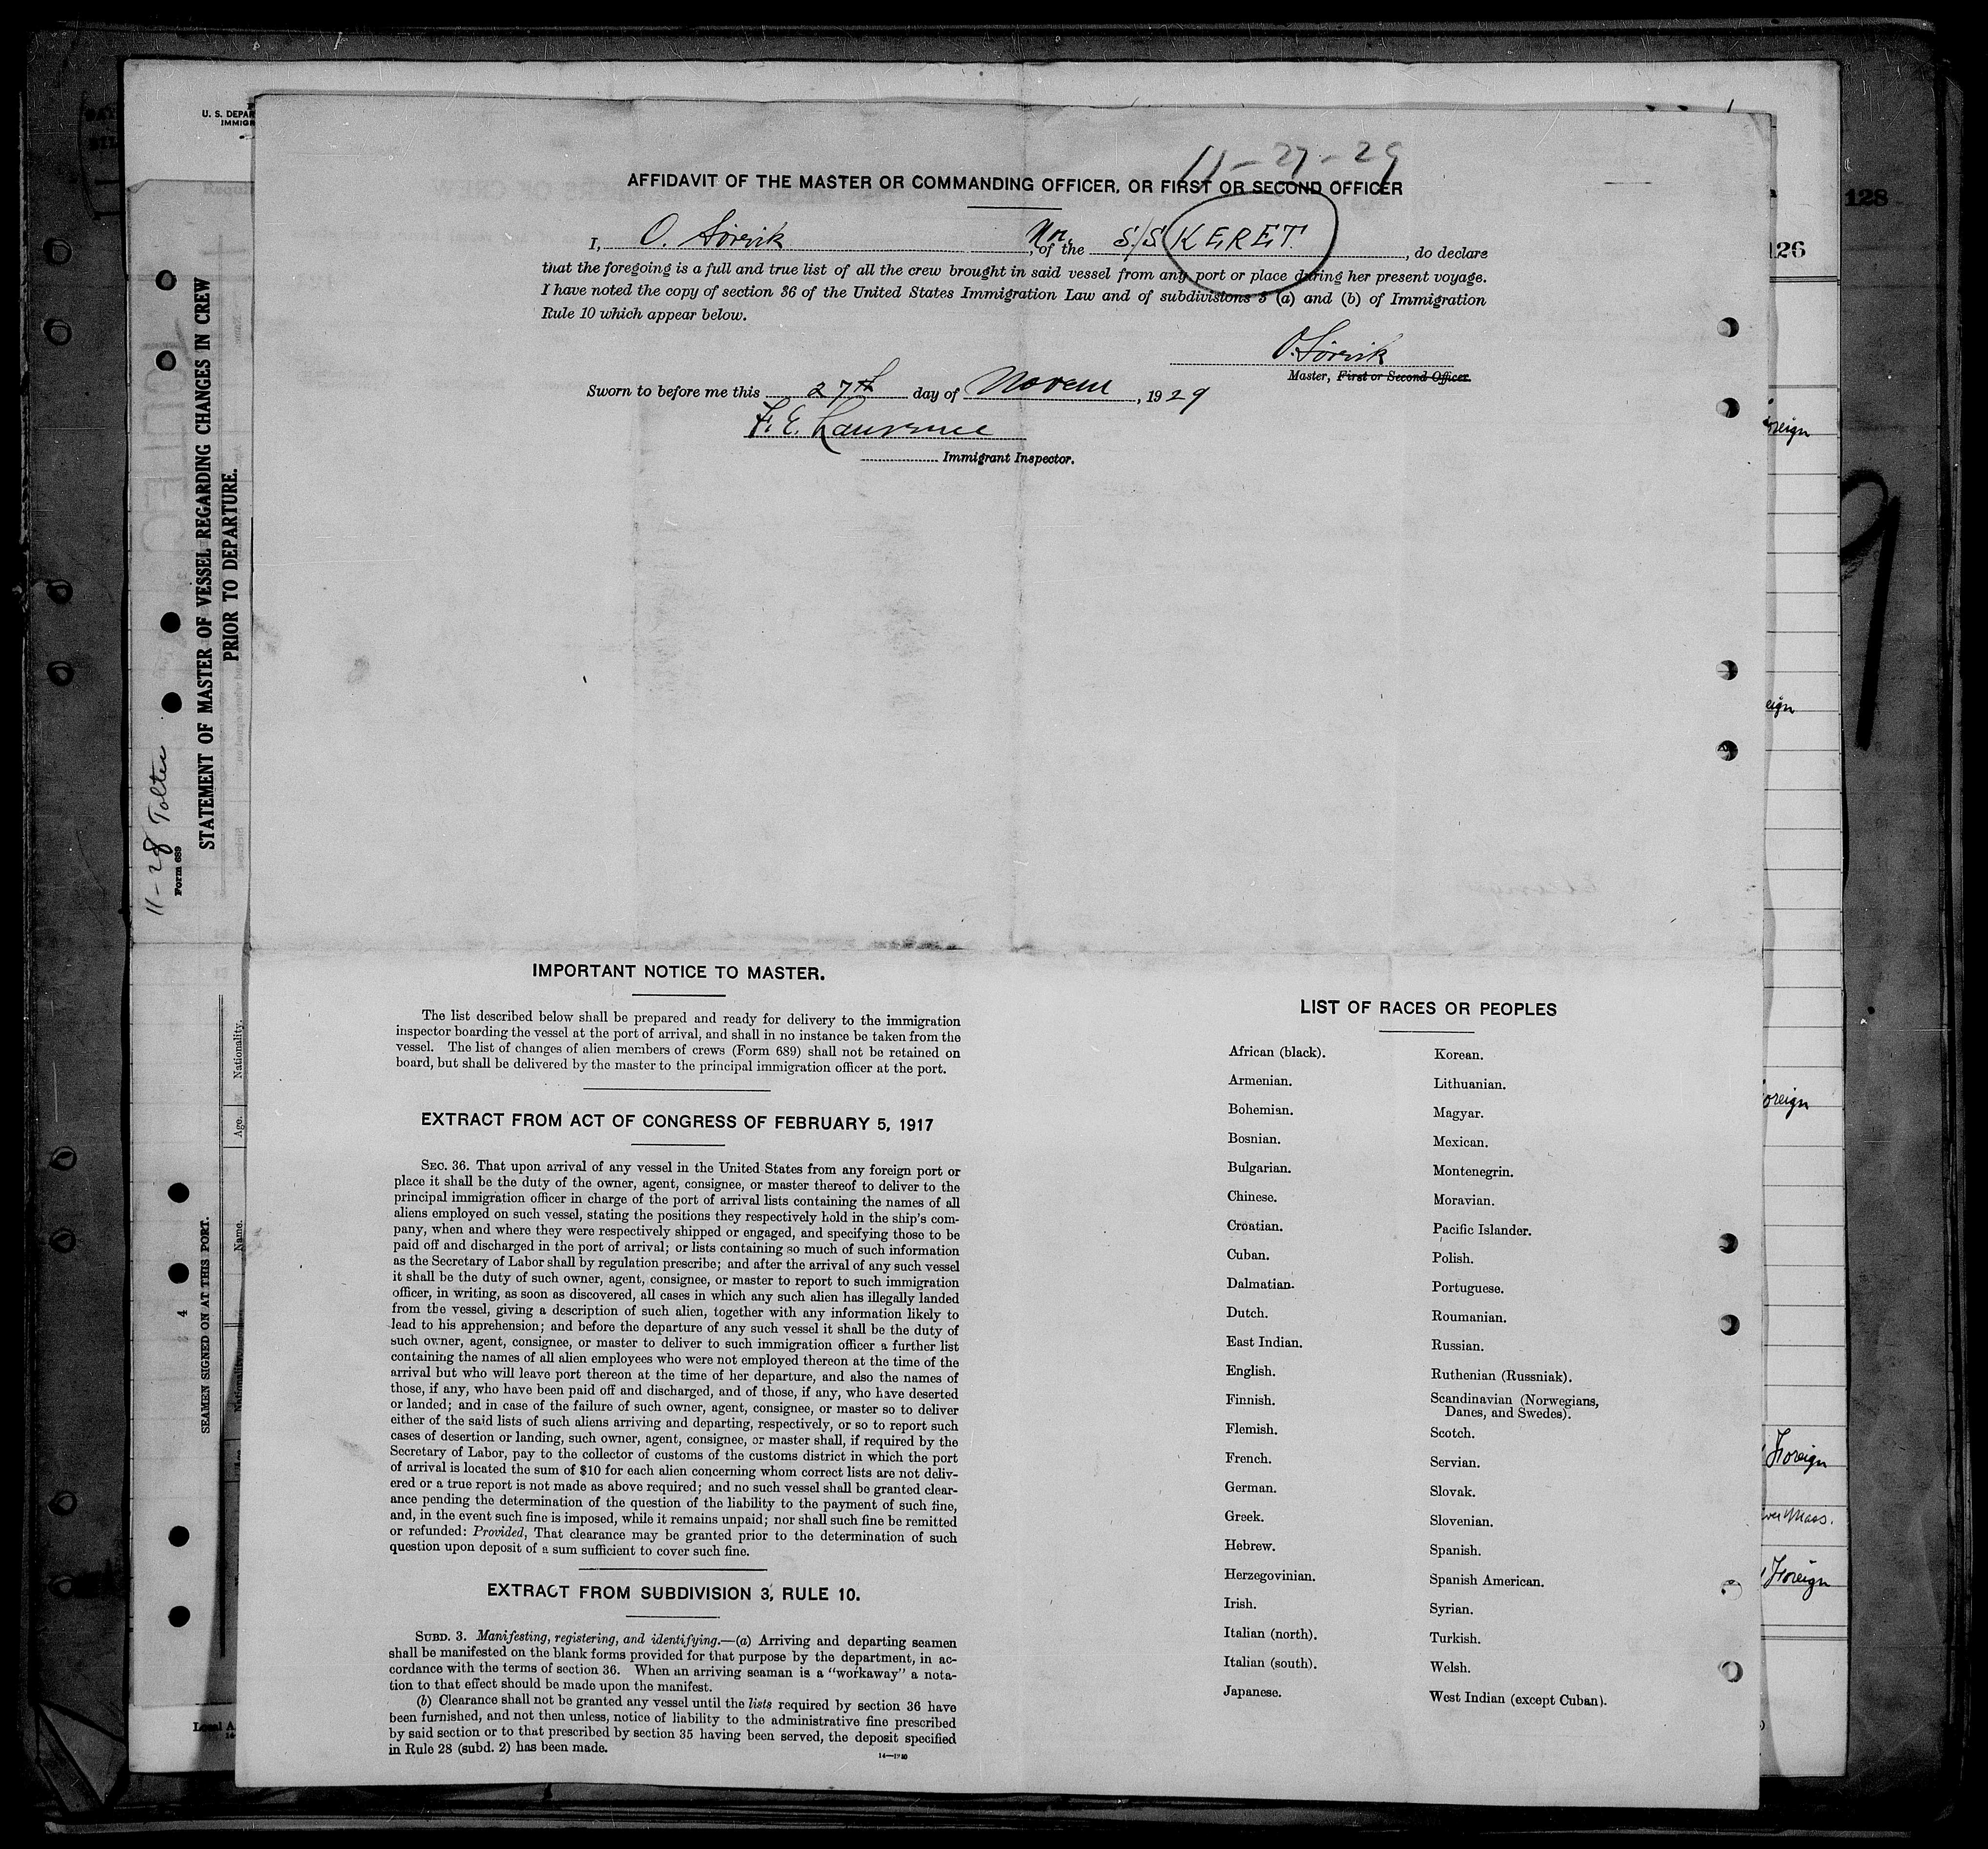 11-27-29
AFFIDAVIT OF THE MASTER OR COMMANDING OFFICER, OR FIRST OR SECOND OFFICER
I, O. Sörvik, of the Nor. S/S KERET., do declare
that the foregoing is a full and true list of all the crew brought in said vessel from any port or place during her present voyage.
I have noted the copy of section 36 of the United States Immigration Law and of subdivisions 3 (a) and (b) of Immigration
Rule 10 which appear below.
O. Sörvik
Master, First or Second Officer.
Sworn to before me this 27th day of Novem, 1929
F. E. Lawrence
Immigrant Inspector.
IMPORTANT NOTICE TO MASTER.
The list described below shall be prepared and ready for delivery to the immigration
inspector boarding the vessel at the port of arrival, and shall in no instance be taken from the
vessel. The list of changes of alien members of crews (Form 689) shall not be retained on
board, but shall be delivered by the master to the principal immigration officer at the port.
EXTRACT FROM ACT OF CONGRESS OF FEBRUARY 5, 1917
SEC. 36. That upon arrival of any vessel in the United States from any foreign port or
place it shall be the duty of the owner, agent, consignee, or master thereof to deliver to the
principal immigration officer in charge of the port of arrival lists containing the names of all
aliens employed on such vessel, stating the positions they respectively hold in the ship's com-
pany, when and where they were respectively shipped or engaged, and specifying those to be
paid off and discharged in the port of arrival; or lists containing so much of such information
as the Secretary of Labor shall by regulation prescribe; and after the arrival of any such vessel
it shall be the duty of such owner, agent, consignee, or master to report to such immigration
officer, in writing, as soon as discovered, all cases in which any such alien has illegally landed
from the vessel, giving a description of such alien, together with any information likely to
lead to his apprehension; and before the departure of any such vessel it shall be the duty of
such owner, agent, consignee, or master to deliver to such immigration officer a further list
containing the names of all alien employees who were not employed thereon at the time of the
arrival but who will leave port thereon at the time of her departure, and also the names of
those, if any, who have been paid off and discharged, and of those, if any, who have deserted
or landed; and in case of the failure of such owner, agent, consignee, or master so to deliver
either of the said lists of such aliens arriving and departing, respectively, or so to report such
cases of desertion or landing, such owner, agent, consignee, or master shall, if required by the
Secretary of Labor, pay to the collector of customs of the customs district in which the port
of arrival is located the sum of $10 for each alien concerning whom correct lists are not deliv-
ered or a true report is not made as above required; and no such vessel shall be granted clear-
ance pending the determination of the question of the liability to the payment of such fine,
and, in the event such fine is imposed, while it remains unpaid; nor shall such fine be remitted
or refunded: Provided, That clearance may be granted prior to the determination of such
question upon deposit of a sum sufficient to cover such fine.
EXTRACT FROM SUBDIVISION 3, RULE 10.
SUBD. 3. Manifesting, registering, and identifying.—(a) Arriving and departing seamen
shall be manifested on the blank forms provided for that purpose by the department, in ac-
cordance with the terms of section 36. When an arriving seaman is a "workaway" a nota-
tion to that effect should be made upon the manifest.
(b) Clearance shall not be granted any vessel until the lists required by section 36 have
been furnished, and not then unless, notice of liability to the administrative fine prescribed
by said section or to that prescribed by section 35 having been served, the deposit specified
in Rule 28 (subd. 2) has been made.
LIST OF RACES OR PEOPLES
African (black).
Armenian.
Bohemian.
Bosnian.
Bulgarian.
Chinese.
Croatian.
Cuban.
Dalmatian.
Dutch.
East Indian.
English.
Finnish.
Flemish.
French.
German.
Greek.
Hebrew.
Herzegovinian.
Irish.
Italian (north).
Italian (south).
Japanese.
Korean.
Lithuanian.
Magyar.
Mexican.
Montenegrin.
Moravian.
Pacific Islander.
Polish.
Portuguese.
Roumanian.
Russian.
Ruthenian (Russniak).
Scandinavian (Norwegians,
Danes, and Swedes).
Scotch.
Servian.
Slovak.
Slovenian.
Spanish.
Spanish American.
Syrian.
Turkish.
Welsh.
West Indian (except Cuban).
U. S. DEPAR
IMMIGR
11-28 Toltec
Form 689
STATEMENT OF MASTER OF VESSEL REGARDING CHANGES IN CREW
PRIOR TO DEPARTURE.
SEAMEN SIGNED ON AT THIS PORT.
4
Name.
Age.
Nationality.
Nationality.
128
126
Foreign
Foreign
9